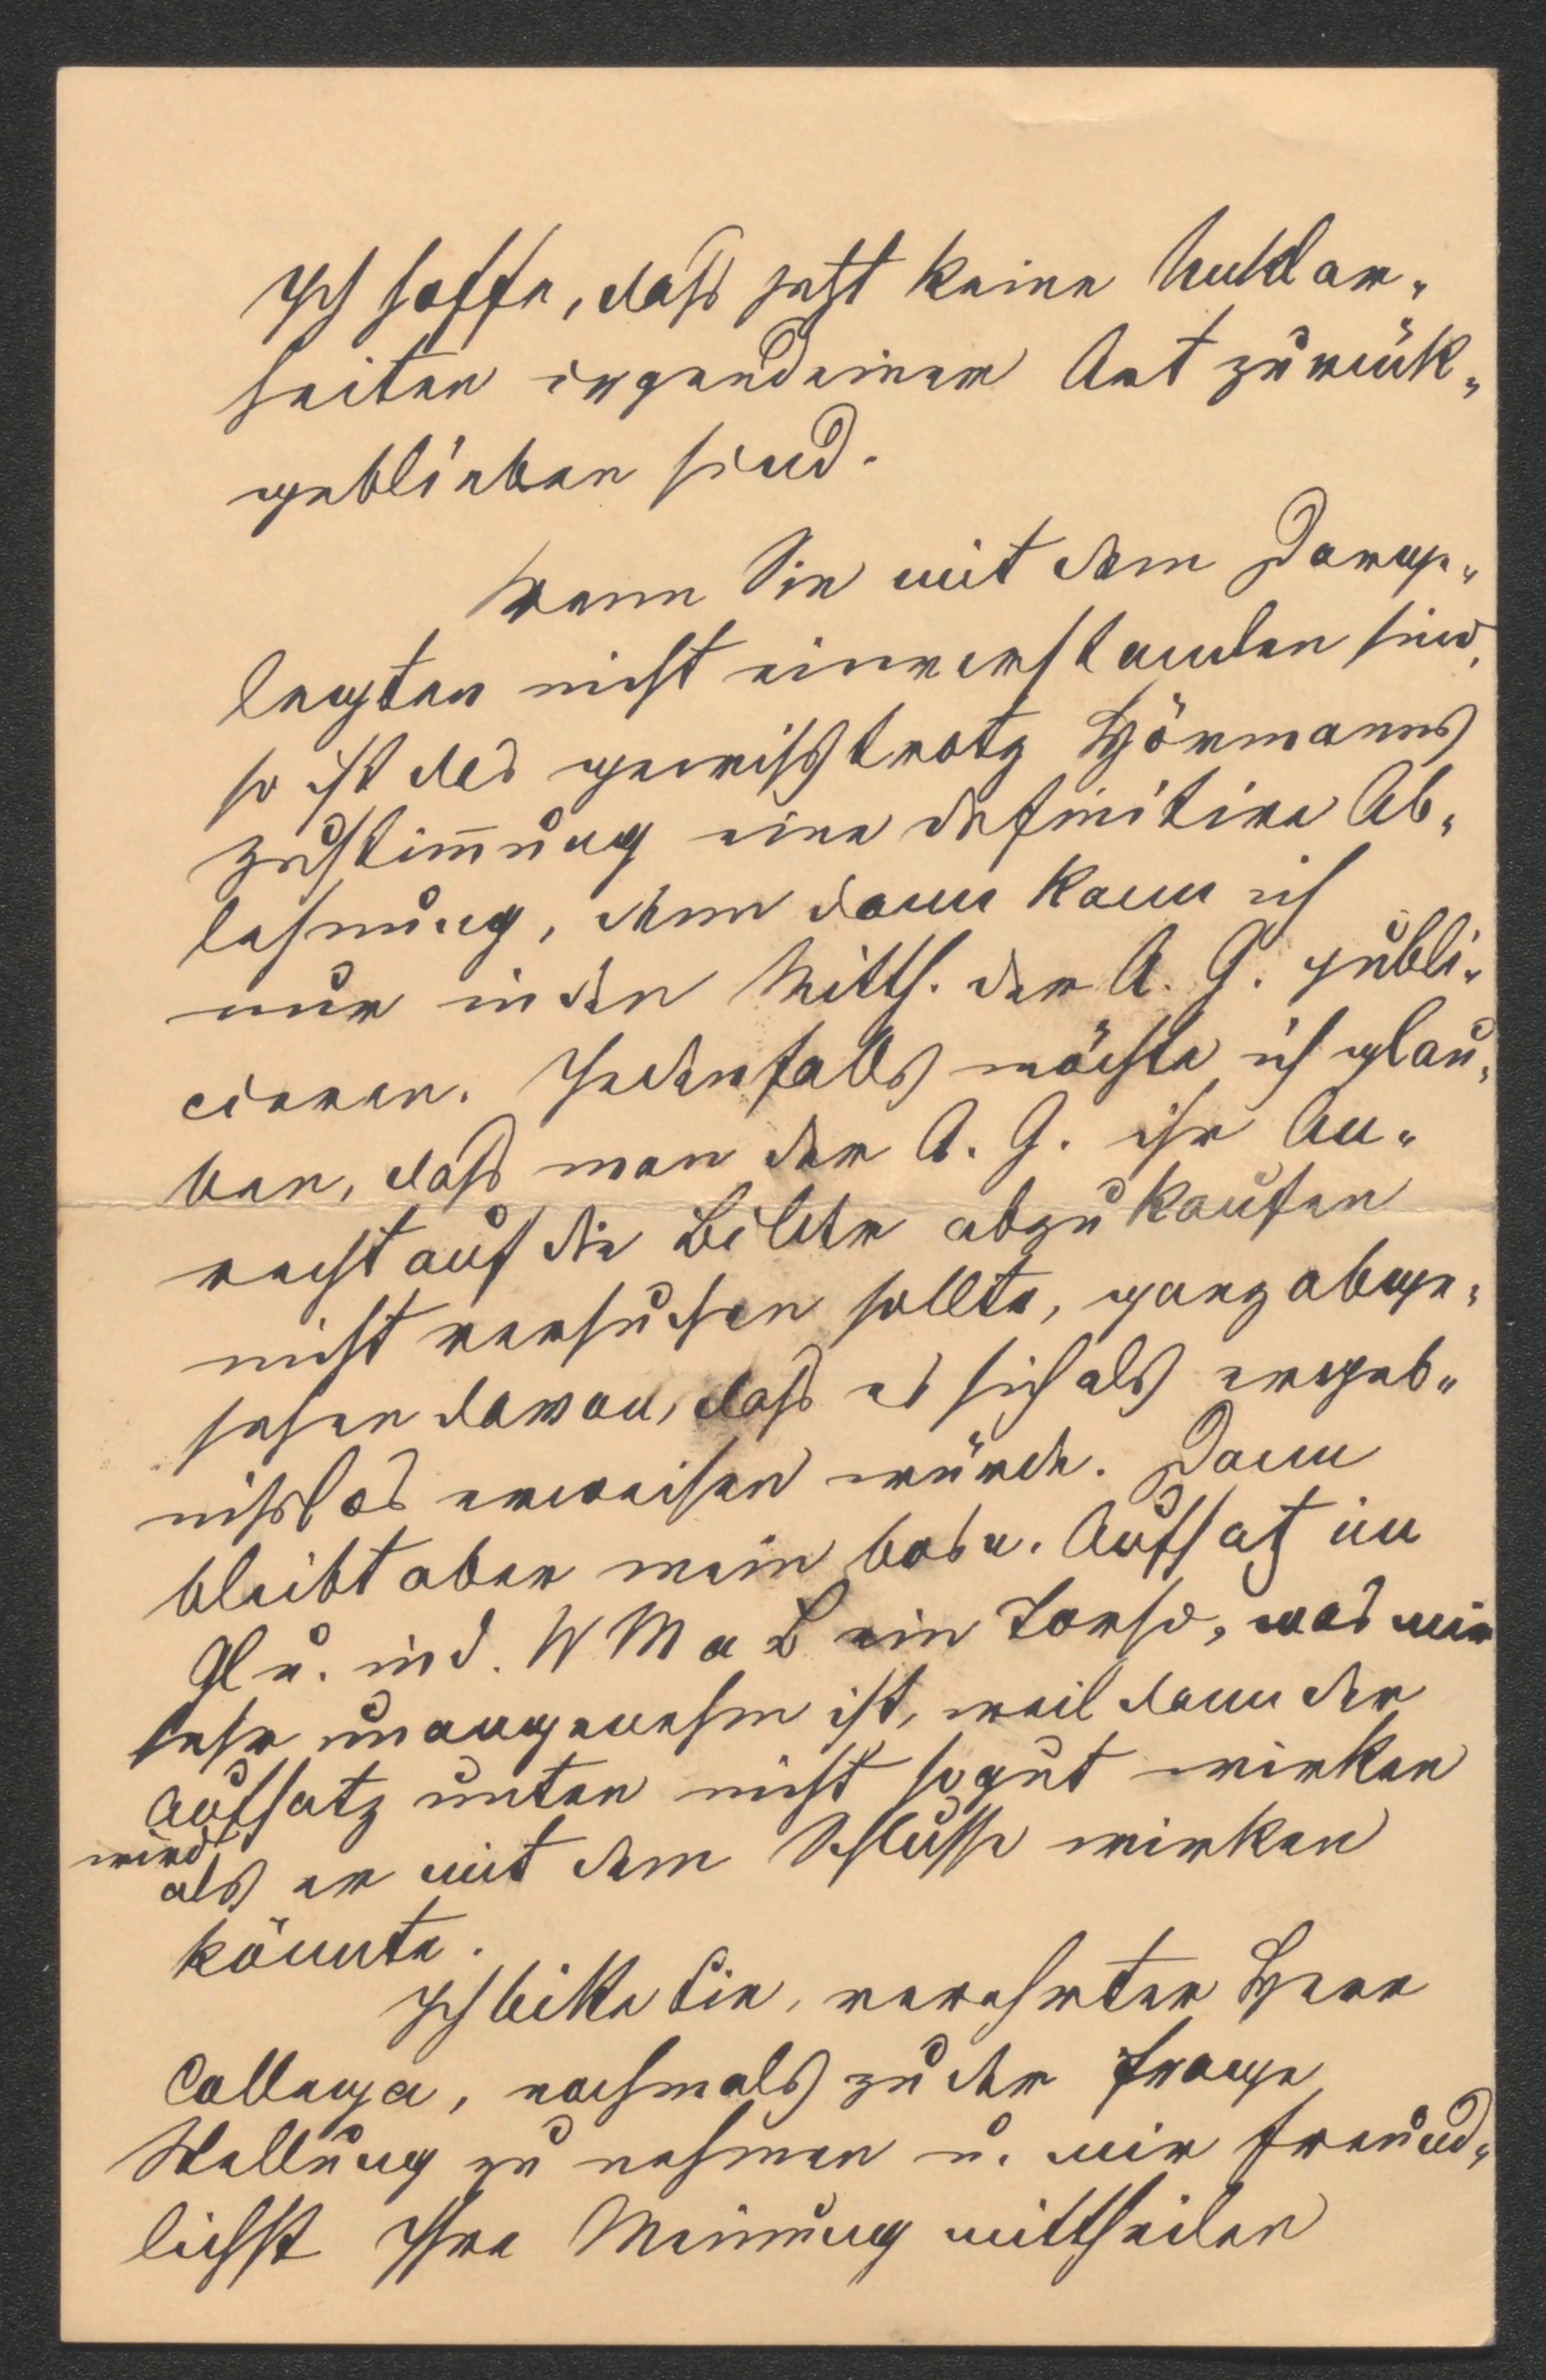 Ich hoffe, dass jetzt keine Unklar„
heiten irgendeiner Art zurück„
geblieben sind.
Wenn Sie mit dem Darge„
legten nicht einverstanden sind,
so ist das gewiss trotz Hörmanns
Zustim̅ung eine definitive Ab„
lehnung, denn dann kann ich
nur in den Mitth. der A. G. publi„
cieren. Jedenfalls möchte ich glau„
ben, dass man der A. G. ihr An„
recht auf die Bilder abzukaufen
nicht versuchen sollte, ganz abge„
sehen davon, dass es sich als ergeb„
nisslos erweisen würde. Dann
bleibt aber mein Aufsatz im
Gl u. in d. W M a B ein Torso, was mir
sehr unangenehm ist, weil dann der
Aufsatz unten nicht so gut wirken
wird
als er mit dem Schlusse wirken
könnte.
Ich bitte Sie, verehrter Herr
Collega, nochmals zu der Frage
Stellung zu nehmen u. mir freund„
lichst Ihre Meinung mittheilen